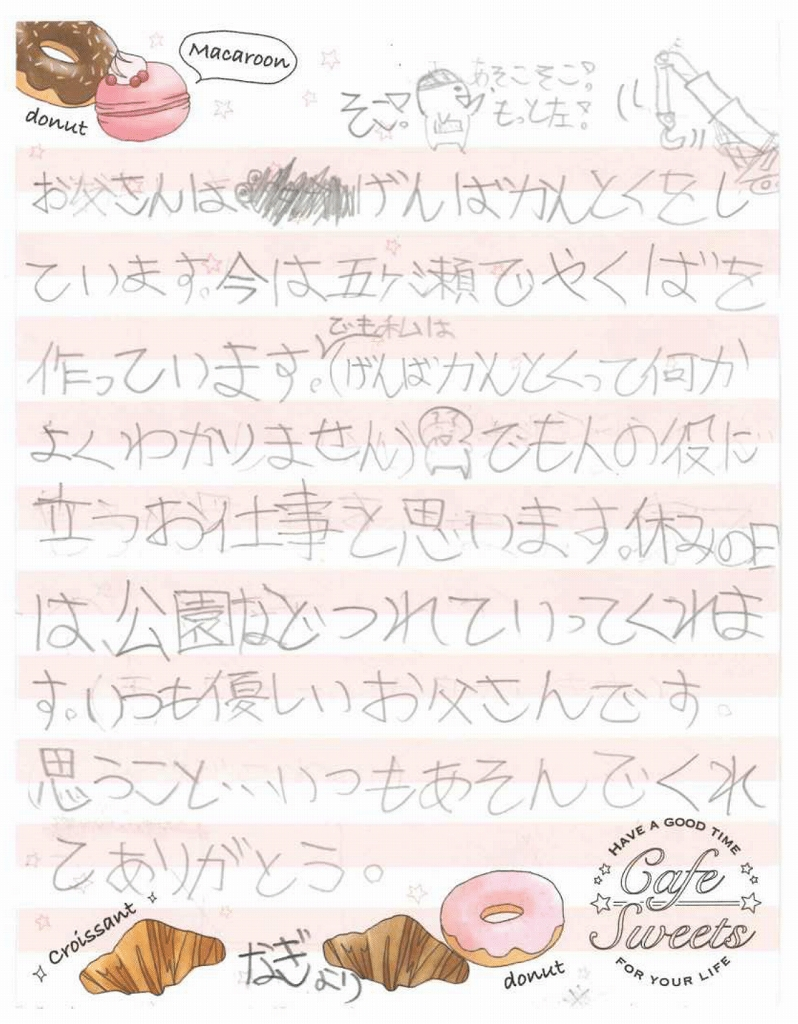 Macaroon
donut
そこ!
あそこそこ!
もっと左!
お父さんは げんばかんとくをし
ています。今は五ヶ瀬でやくばを
でも私は
作っています。(げんばかんとくって何か
よくわかりません)でも人の役に
立つお仕事と思います。休みの日
は、公園などつれていってくれま
す。いつも優しいお父さんです。
思うこと…いつもあそんでくれ
てありがとう。
HAVE A GOOD TIME
Cafe
Sweets
FOR YOUR LIFE
Croissant
なぎより
donut